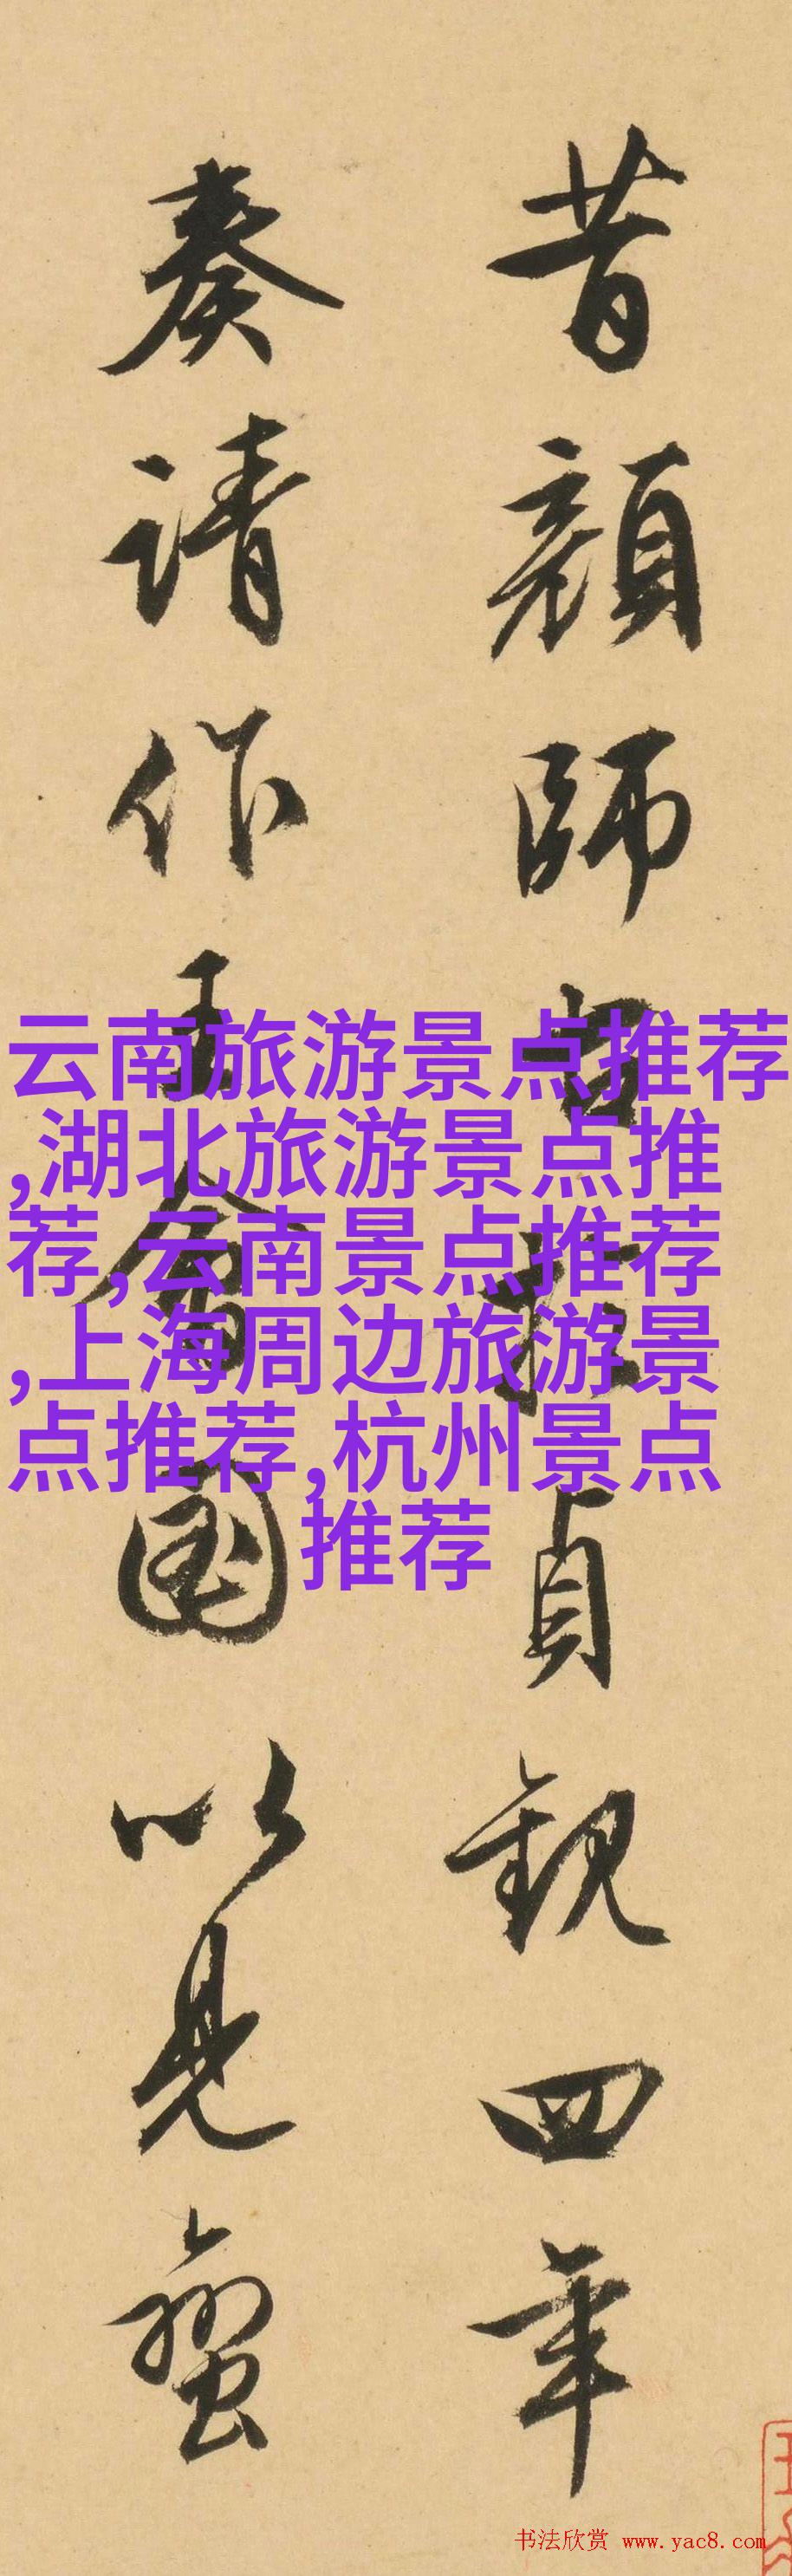 昔顔師古於貞観四年
奏請作王會國以見蠻
云南旅游景点推荐
,湖北旅游景点推
荐,云南景点推荐
,上海周边旅游景
点推荐,杭州景点
推荐
书法欣赏 www.yac8.com